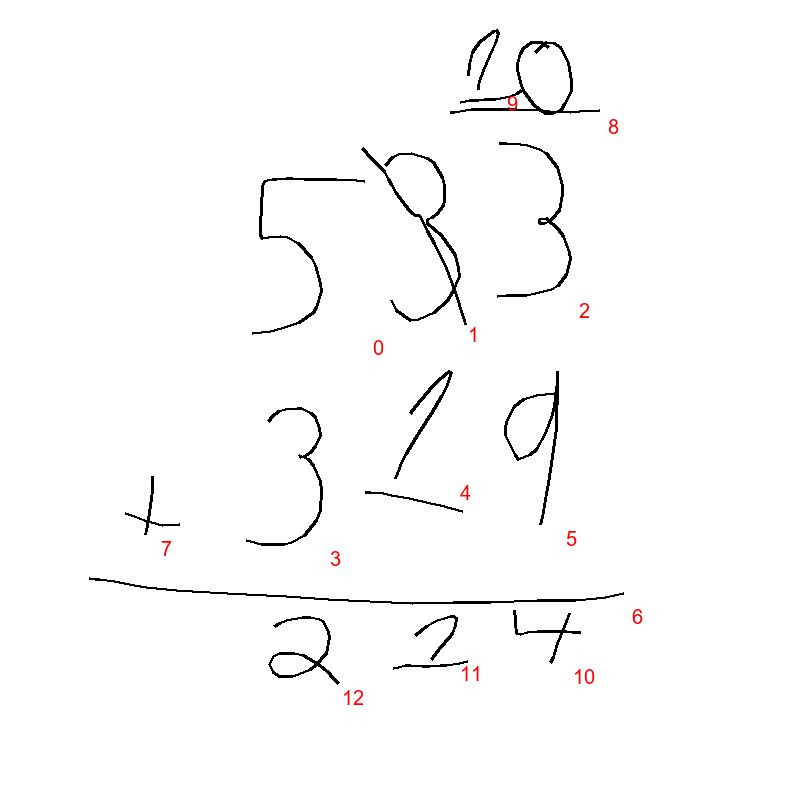 10
9 8
533
0 1 2
+319
7 3 4 5
6
214
12 11 10